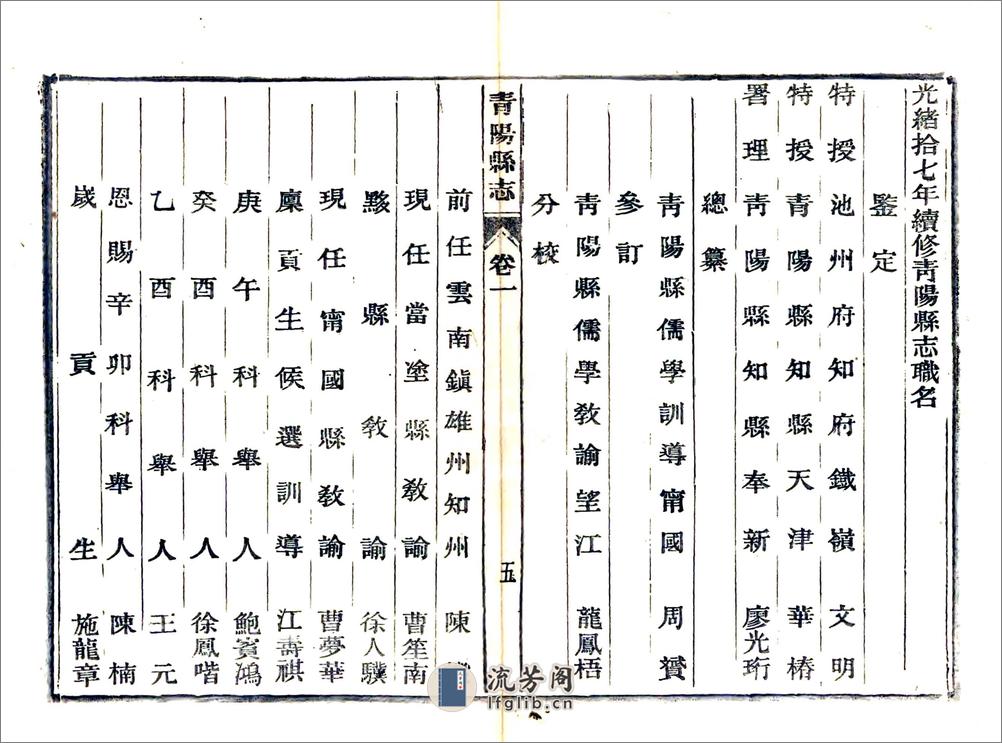 光緒拾七年續修青陽縣志職名
鑒定
特授池州府知府鐵嶺 文明
特授青陽縣知縣天津 華椿
署理青陽縣知縣奉新 廖光珩
總纂
青陽縣儒學訓導甯國 周贇
參訂
青陽縣儒學敎諭望江 龍鳳梧
分校
青陽縣志 卷一 五
前任雲南鎮雄州知州 陳
現任當塗縣敎諭 曹笙南
黟縣敎諭 徐人驥
現任甯國縣敎諭 曹夢華
廩貢生候選訓導 江壽祺
庚午科舉人 鮑賓鴻
癸酉科舉人 徐鳳喈
乙酉科舉人 王元
恩賜辛卯科舉人 陳楠
歲貢生 施龍章
流芳阁
lfglib.cn